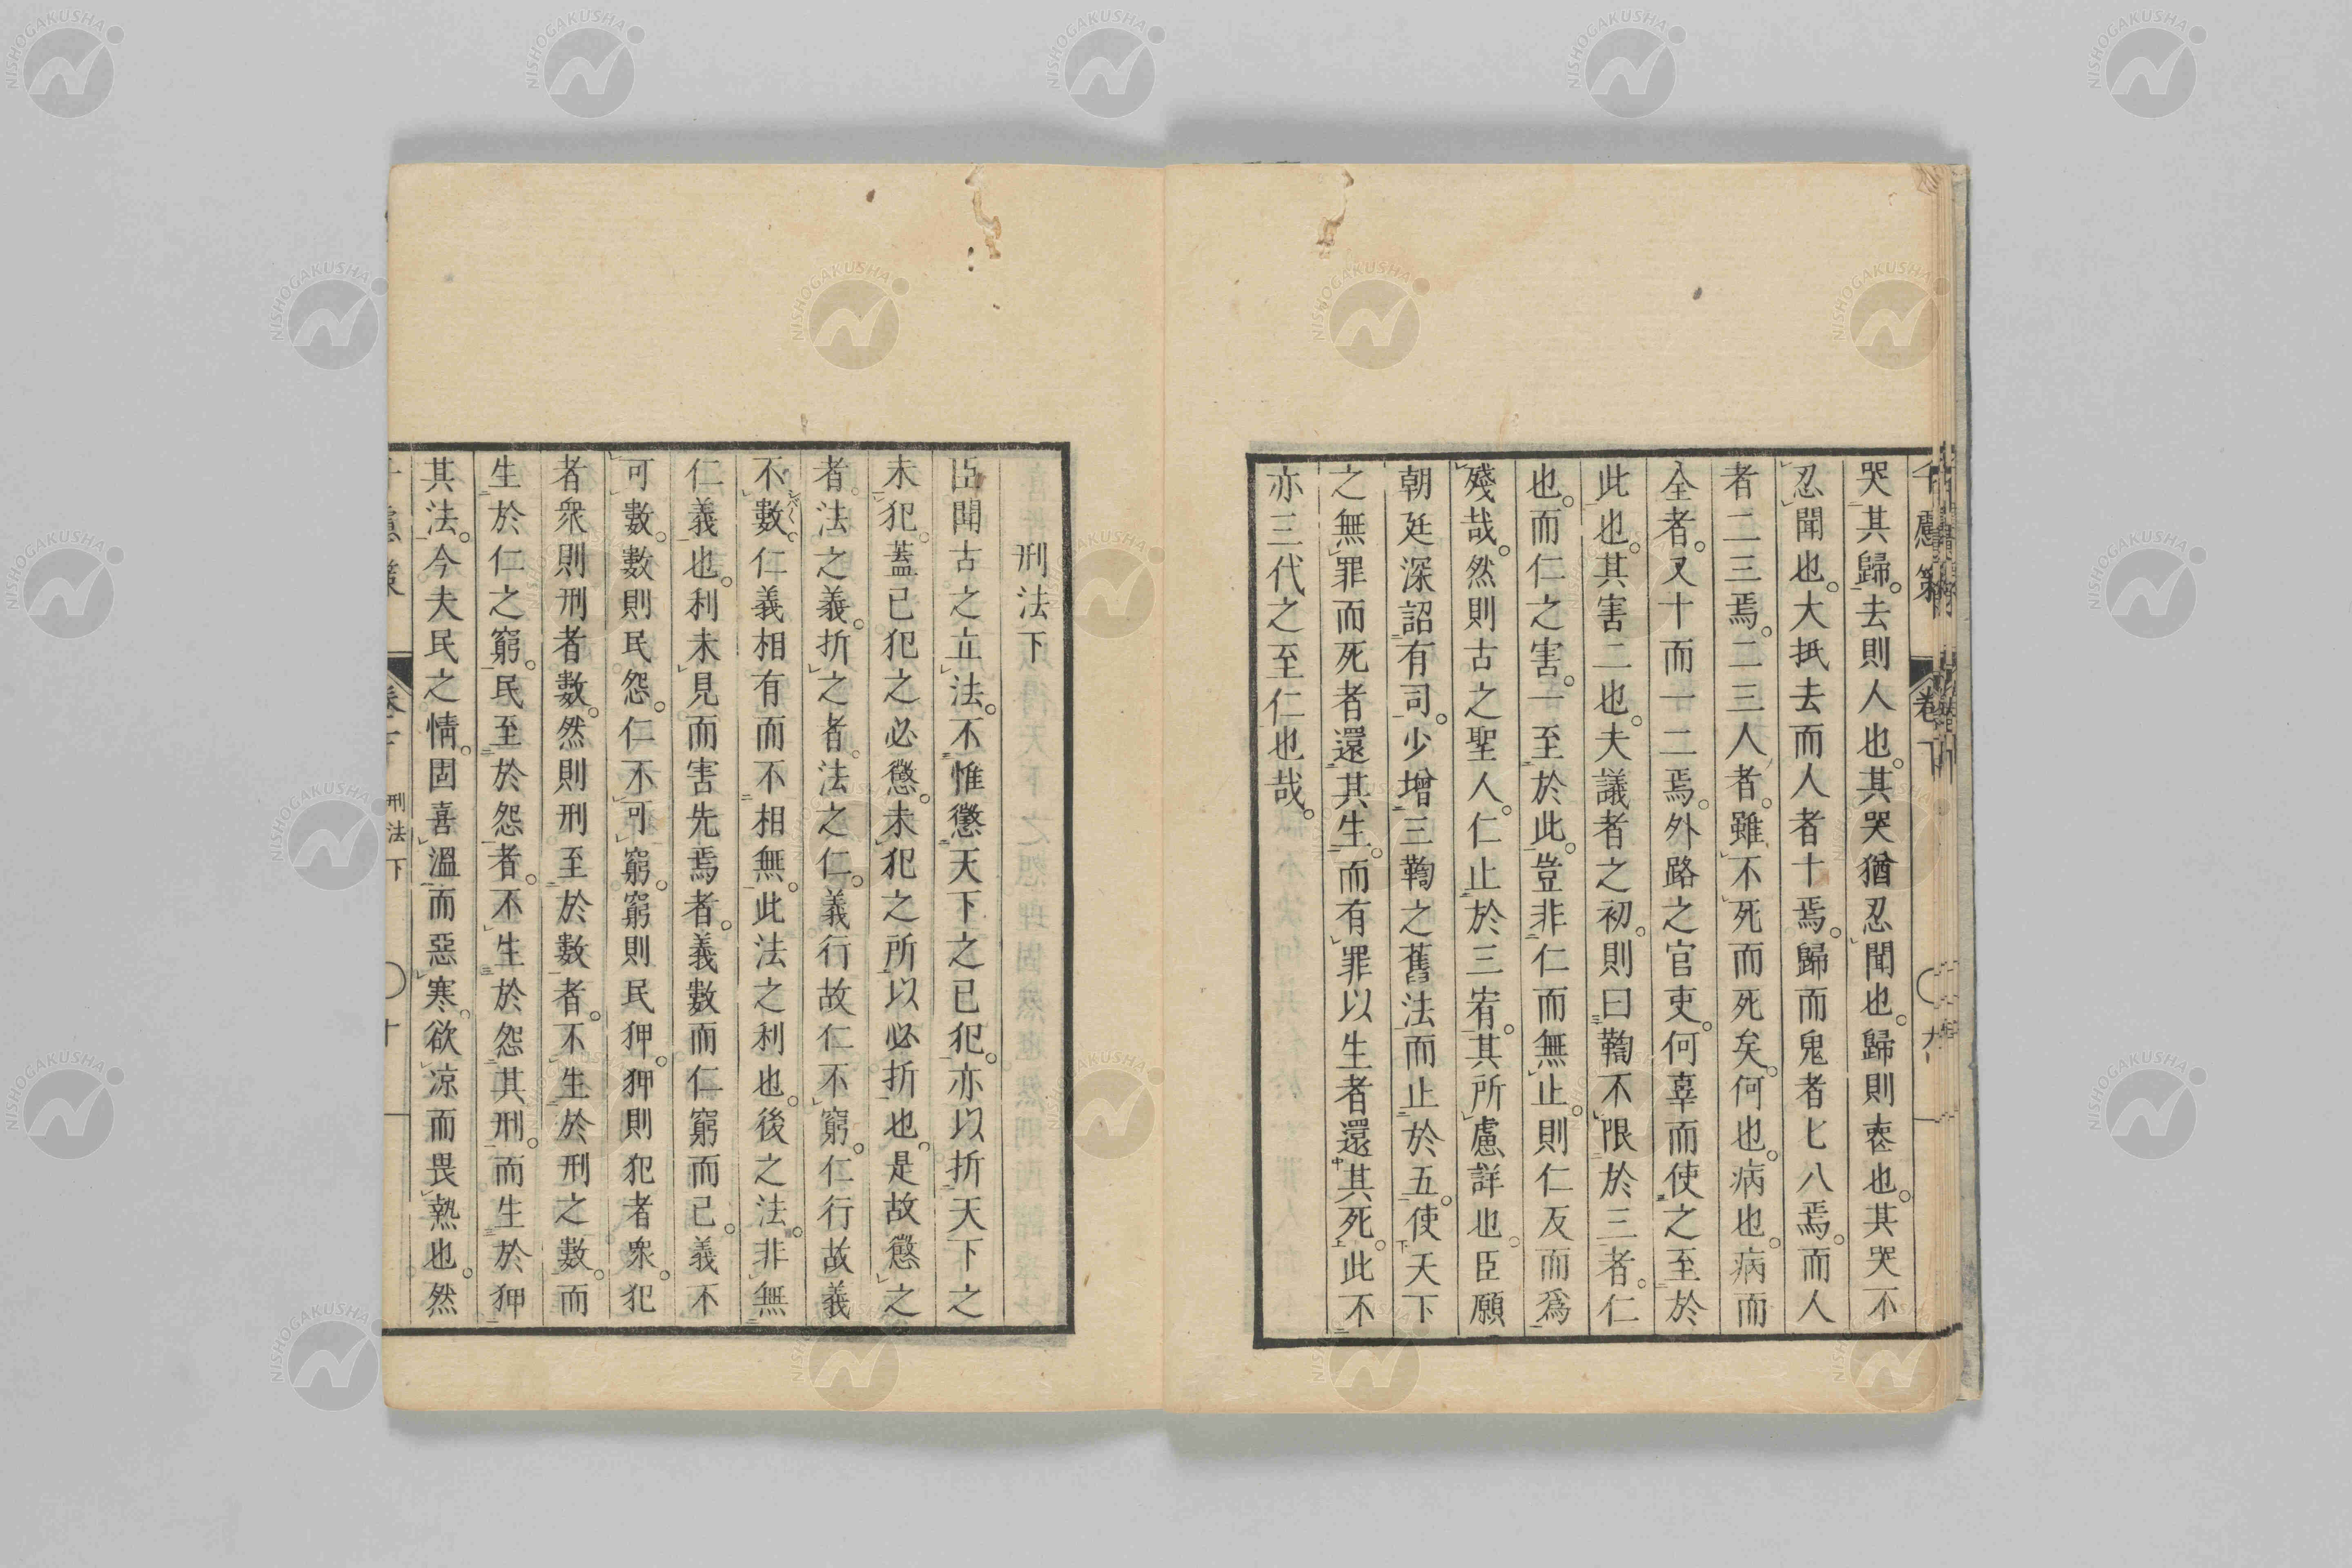 千慮策 卷下 九
哭其歸。去則人也。其哭猶忍聞也。歸則喪也。其哭不
忍聞也。大抵去而人者十焉。歸而鬼者七八焉。而人
者二三焉。二三人者。雖不死而死矣。何也。病也。病而
全者。又十而一二焉。外路之官吏。何辜而使之至於
此也。其害二也。夫議者之初。則曰鞫不限於三者。仁
也。而仁之害。一至於此。豈非仁而無止。則仁反而爲
殘哉。然則古之聖人。仁止於三宥。其所慮詳也。臣願
朝廷深詔有司。少增三鞫之舊法而止於五。使天下
之無罪而死者還其生。而有罪以生者還其死。此不
亦三代之至仁也哉。
刑法下
臣聞古之立法。不惟懲天下之已犯。亦以折天下之
未犯。蓋已犯之必懲。未犯之所以必折也。是故懲之
者。法之義。折之者。法之仁。義行故仁不窮。仁行故義
不數。仁義相有而不相無。此法之利也。後之法。非無
仁義也。利未見而害先焉者。義數而仁窮而已。義不
可數。數則民怨。仁不可窮。窮則民狎。狎則犯者衆。犯
者衆則刑者數。然則刑至於數者。不生於刑之數。而
生於仁之窮。民至於怨者。不生於怨其刑。而生於狎
其法。今夫民之情。固喜溫而惡寒。欲凉而畏熱也。然
千慮策 卷下 刑法下 十
NISHOGAKUSHA